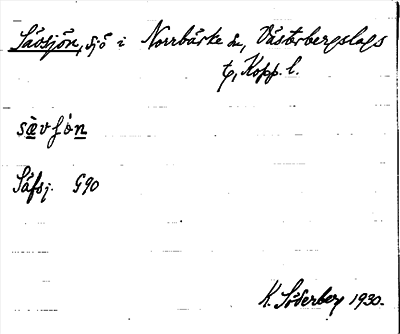 Sävsjön, sjö i Norrbärke sn, Västerbergslags
t, Kopp. l.
sæ̀vʃö̀n
Säfsj. G90
K. Söderberg 1930.